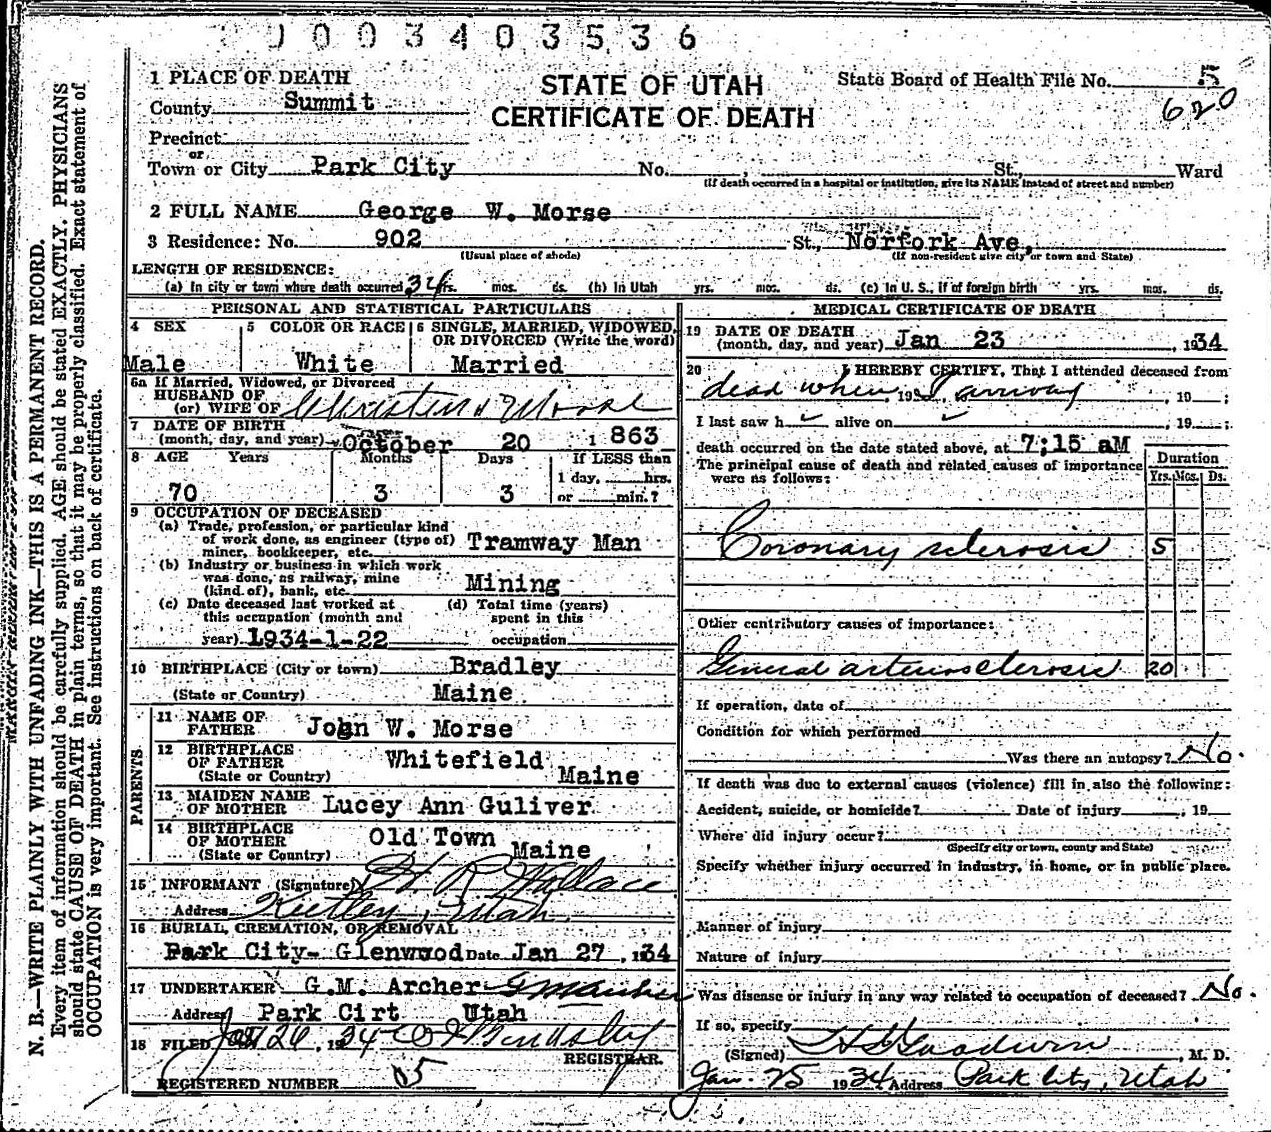 0 0 3 4 0 3 5 3 6
STATE OF UTAH
CERTIFICATE OF DEATH
State Board of Health File No. 5
620
1 PLACE OF DEATH
County Summit
Precinct
or
Town or City Park City No. , St., Ward
(If death occurred in a hospital or institution, give its NAME instead of street and number)
2 FULL NAME George W. Morse
3 Residence: No. 902 St., Norfork Ave,
(Usual place of abode) (If non-resident give city or town and State)
LENGTH OF RESIDENCE:
(a) In city or town where death occurred 34 yrs. mos. ds. (b) In Utah yrs. mos. ds. (c) In U. S., if of foreign birth yrs. mos. ds.
PERSONAL AND STATISTICAL PARTICULARS
4 SEX 5 COLOR OR RACE 6 SINGLE, MARRIED, WIDOWED, OR DIVORCED (Write the word)
Male White Married
6a If Married, Widowed, or Divorced
HUSBAND OF
(or) WIFE OF Morse
7 DATE OF BIRTH
(month, day, and year) October 20 1 863
8 AGE Years Months Days If LESS than
1 day, hrs.
70 3 3 or min.?
9 OCCUPATION OF DECEASED
(a) Trade, profession, or particular kind
of work done, as engineer (type of)
miner, bookkeeper, etc. Tramway Man
(b) Industry or business in which work
was done, as railway, mine
(kind of), bank, etc. Mining
(c) Date deceased last worked at (d) Total time (years)
this occupation (month and spent in this
year) 1934-1-22 occupation
10 BIRTHPLACE (City or town) Bradley
(State or Country) Maine
PARENTS
11 NAME OF
FATHER John W. Morse
12 BIRTHPLACE
OF FATHER Whitefield
(State or Country) Maine
13 MAIDEN NAME
OF MOTHER Lucey Ann Guliver
14 BIRTHPLACE
OF MOTHER Old Town
(State or Country) Maine
15 INFORMANT (Signature) R Wallace
Address Keetley, Utah
16 BURIAL, CREMATION, OR REMOVAL
Park City- Glenwood Date Jan 27 , 1934
17 UNDERTAKER G.M. Archer GM Archer
Address Park Cirt Utah
18 FILED Jan 26, 1934
REGISTRAR.
REGISTERED NUMBER 05
MEDICAL CERTIFICATE OF DEATH
19 DATE OF DEATH
(month, day, and year) Jan 23 , 1934
20 I HEREBY CERTIFY, That I attended deceased from
dead when , 19 I arrived , 19 ;
I last saw h alive on , 19 ;
death occurred on the date stated above, at 7;15 aM
The principal cause of death and related causes of importance
were as follows:
Duration
Yrs. Mos. Ds.
Coronary sclerosis 5
Other contributory causes of importance:
General arteriosclerosis 20
If operation, date of
Condition for which performed
Was there an autopsy? No.
If death was due to external causes (violence) fill in also the following:
Accident, suicide, or homicide? Date of injury , 19
Where did injury occur?
(Specify city or town, county and State)
Specify whether injury occurred in industry, in home, or in public place.
Manner of injury
Nature of injury
Was disease or injury in any way related to occupation of deceased? No.
If so, specify
(Signed) Goodwin , M. D.
Jan. 25 1934 Address Park City, Utah
N. B.—WRITE PLAINLY WITH UNFADING INK—THIS IS A PERMANENT RECORD.
Every item of information should be carefully supplied. AGE should be stated EXACTLY. PHYSICIANS
should state CAUSE OF DEATH in plain terms, so that it may be properly classified. Exact statement of
OCCUPATION is very important. See instructions on back of certificate.